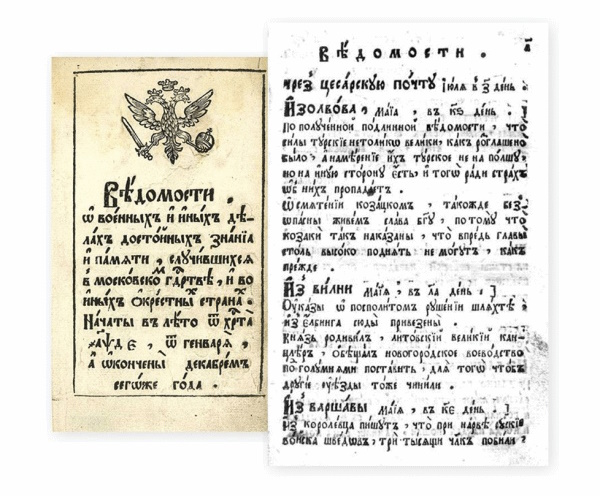 Вѣ́домости .
ѿ военныхъ и иныхъ дѣ-
лахъ достойныхъ знанїа
и памяти , случившихся
в московско гдртвѣ , и во
иныхъ ѻкрестны странахъ
Начаты въ лѣто ѿ хрта
҂аѱд ѿ генваря ,
а ѡкончены декабремъ
сегѡже года .
Вѣ́домости .
Чрез цесарскую почту їюля в з день .
Изолвова , маїа , въ кѕ день .
По полученной подлинной вѣдомости , что
силы турскїе нетоликѡ велики , какъ розглашено
было , а намѣренїе ихъ турское не на полшу ,
но на иную сторону есть , и тогѡ ради страхъ
ѿ нихъ пропадетъ .
ѡ смятенїи козацком , такожде без
ѡпасны живемъ слава бгу , потому что
козаки такъ наказаны , что впредь главы
столь высоко поднять не могутъ , какъ
прежде .
Из вилни маїа , въ ла день .
Оуказы ѡ посполитом рушенїи шляхтѣ
из елбинга сюды привезены .
Князь родивилъ , литовский великїи кан-
цлѣръ , обѣщалъ новогородское воеводство
по голумнями поставить , для тогѡ чтобъ
други уѣзды тоже чинили .
Из варшавы маїа , въ кѕ день .
Из королевца пишутъ , что при нарвѣ руские
воиска шведѡвъ , три тысящи члкъ побили